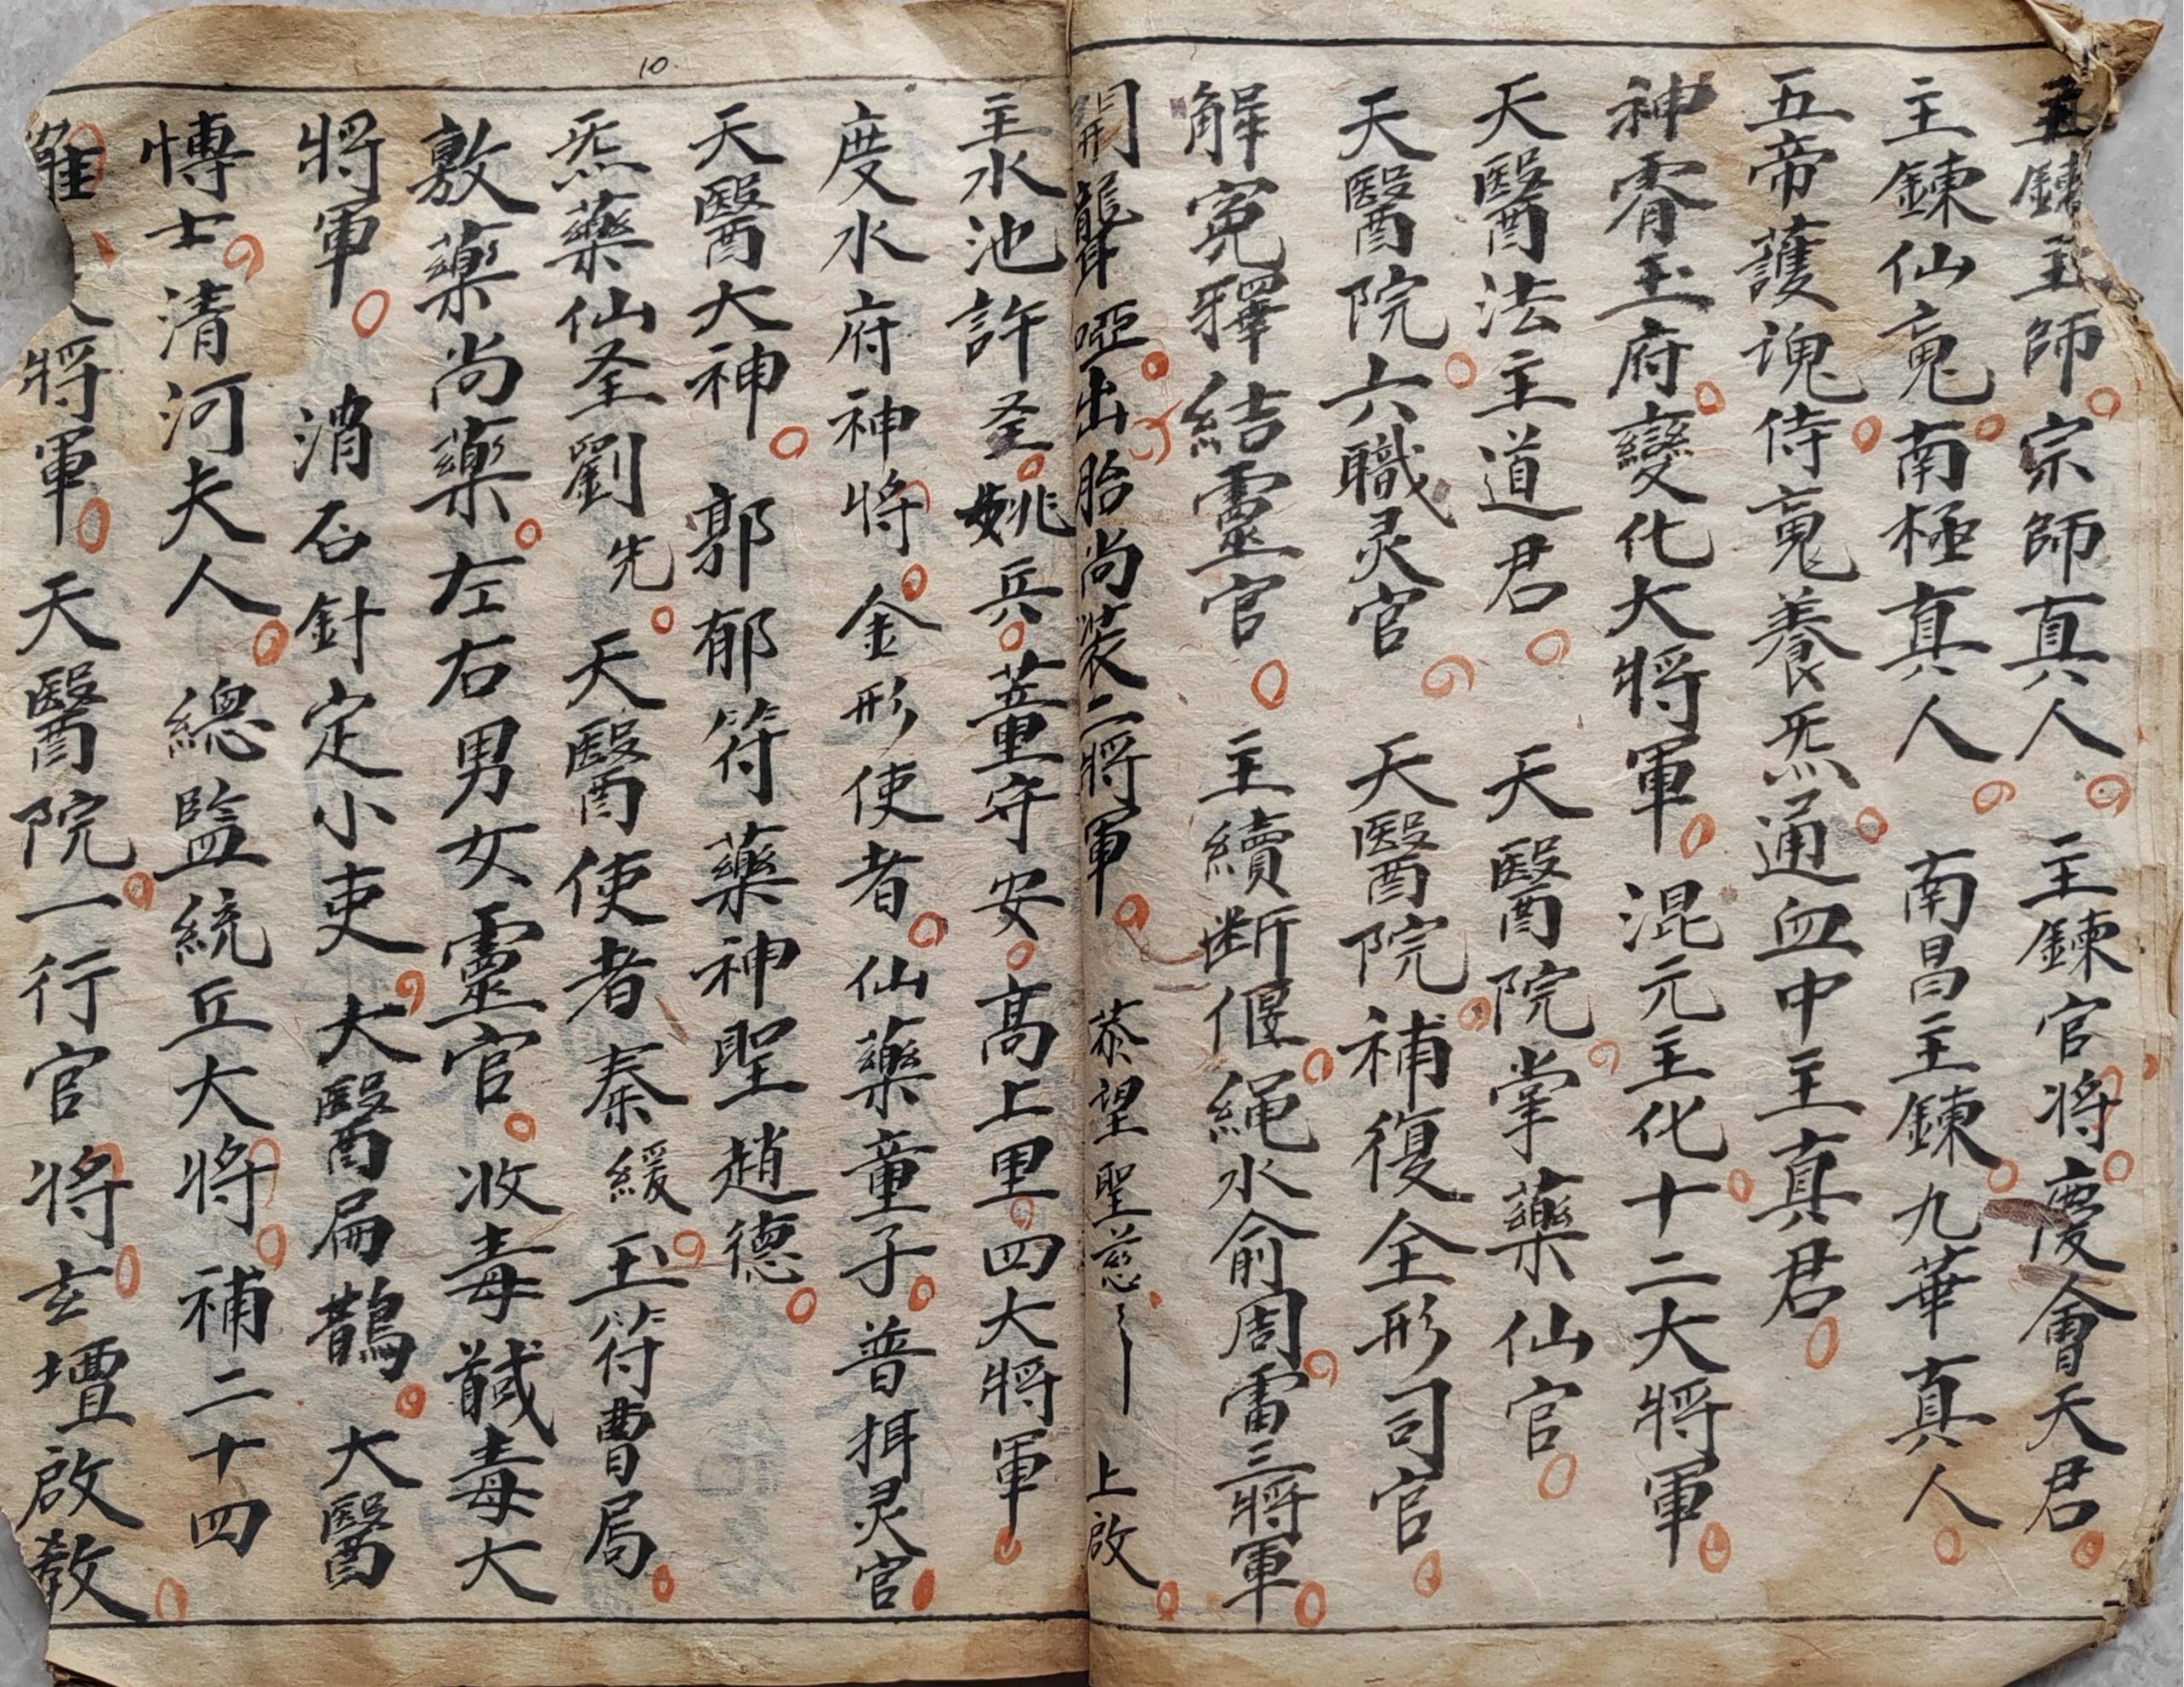 主鍊主師宗師真人主鍊官将慶會天君
主鍊仙䰟南極真人南昌主鍊九華真人
五帝護魂侍䰟養炁通血中主真君
神霄玉府變化大将軍混元主化十二大将軍
天醫法主道君天醫院掌藥仙官
天醫院六職灵官天醫院補復全形司官
解寃釋結靈官主續断偃絕水俞周雷三將軍
開聾啞出胎尚裝二將軍恭望聖慈上啟
主水池許圣姚兵董守安高上里四大將軍
度水府神将金形使者仙藥童子普揖灵官
天醫大神郭郁符藥神聖趙德
炁藥仙圣劉先天醫使者秦緩玉符曹局
敷藥尚藥左右男女靈官收毒馘毒大
將軍消石針定小吏大醫扁鵲大醫
愽士清河夫人總監統兵大将補二十四
将軍天醫院一行官将玄壇啟教
10